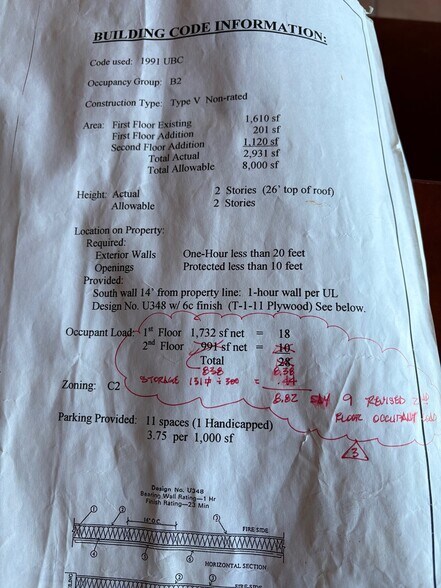 BUILDING CODE INFORMATION:
Code used: 1991 UBC
Occupancy Group: B2
Construction Type: Type V Non-rated
Area: First Floor Existing 1,610 sf
First Floor Addition 201 sf
Second Floor Addition 1,120 sf
Total Actual 2,931 sf
Total Allowable 8,000 sf
Height: Actual 2 Stories (26' top of roof)
Allowable 2 Stories
Location on Property:
Required:
Exterior Walls One-Hour less than 20 feet
Openings Protected less than 10 feet
Provided:
South wall 14' from property line: 1-hour wall per UL
Design No. U348 w/ 6c finish (T-1-11 Plywood) See below.
Occupant Load: 1st Floor 1,732 sf net = 18
2nd Floor 991 sf net = 10
Total 28
838 8.38
STORAGE 131 ÷ 300 = .44
Zoning: C2
8.82 SAY 9 REVISED
FLOOR OCCUPANT
Parking Provided: 11 spaces (1 Handicapped)
3.75 per 1,000 sf
3
Design No. U348
Bearing Wall Rating—1 Hr
Finish Rating—23 Min
16" O.C.
FIRE SIDE
HORIZONTAL SECTION
FIRE SIDE